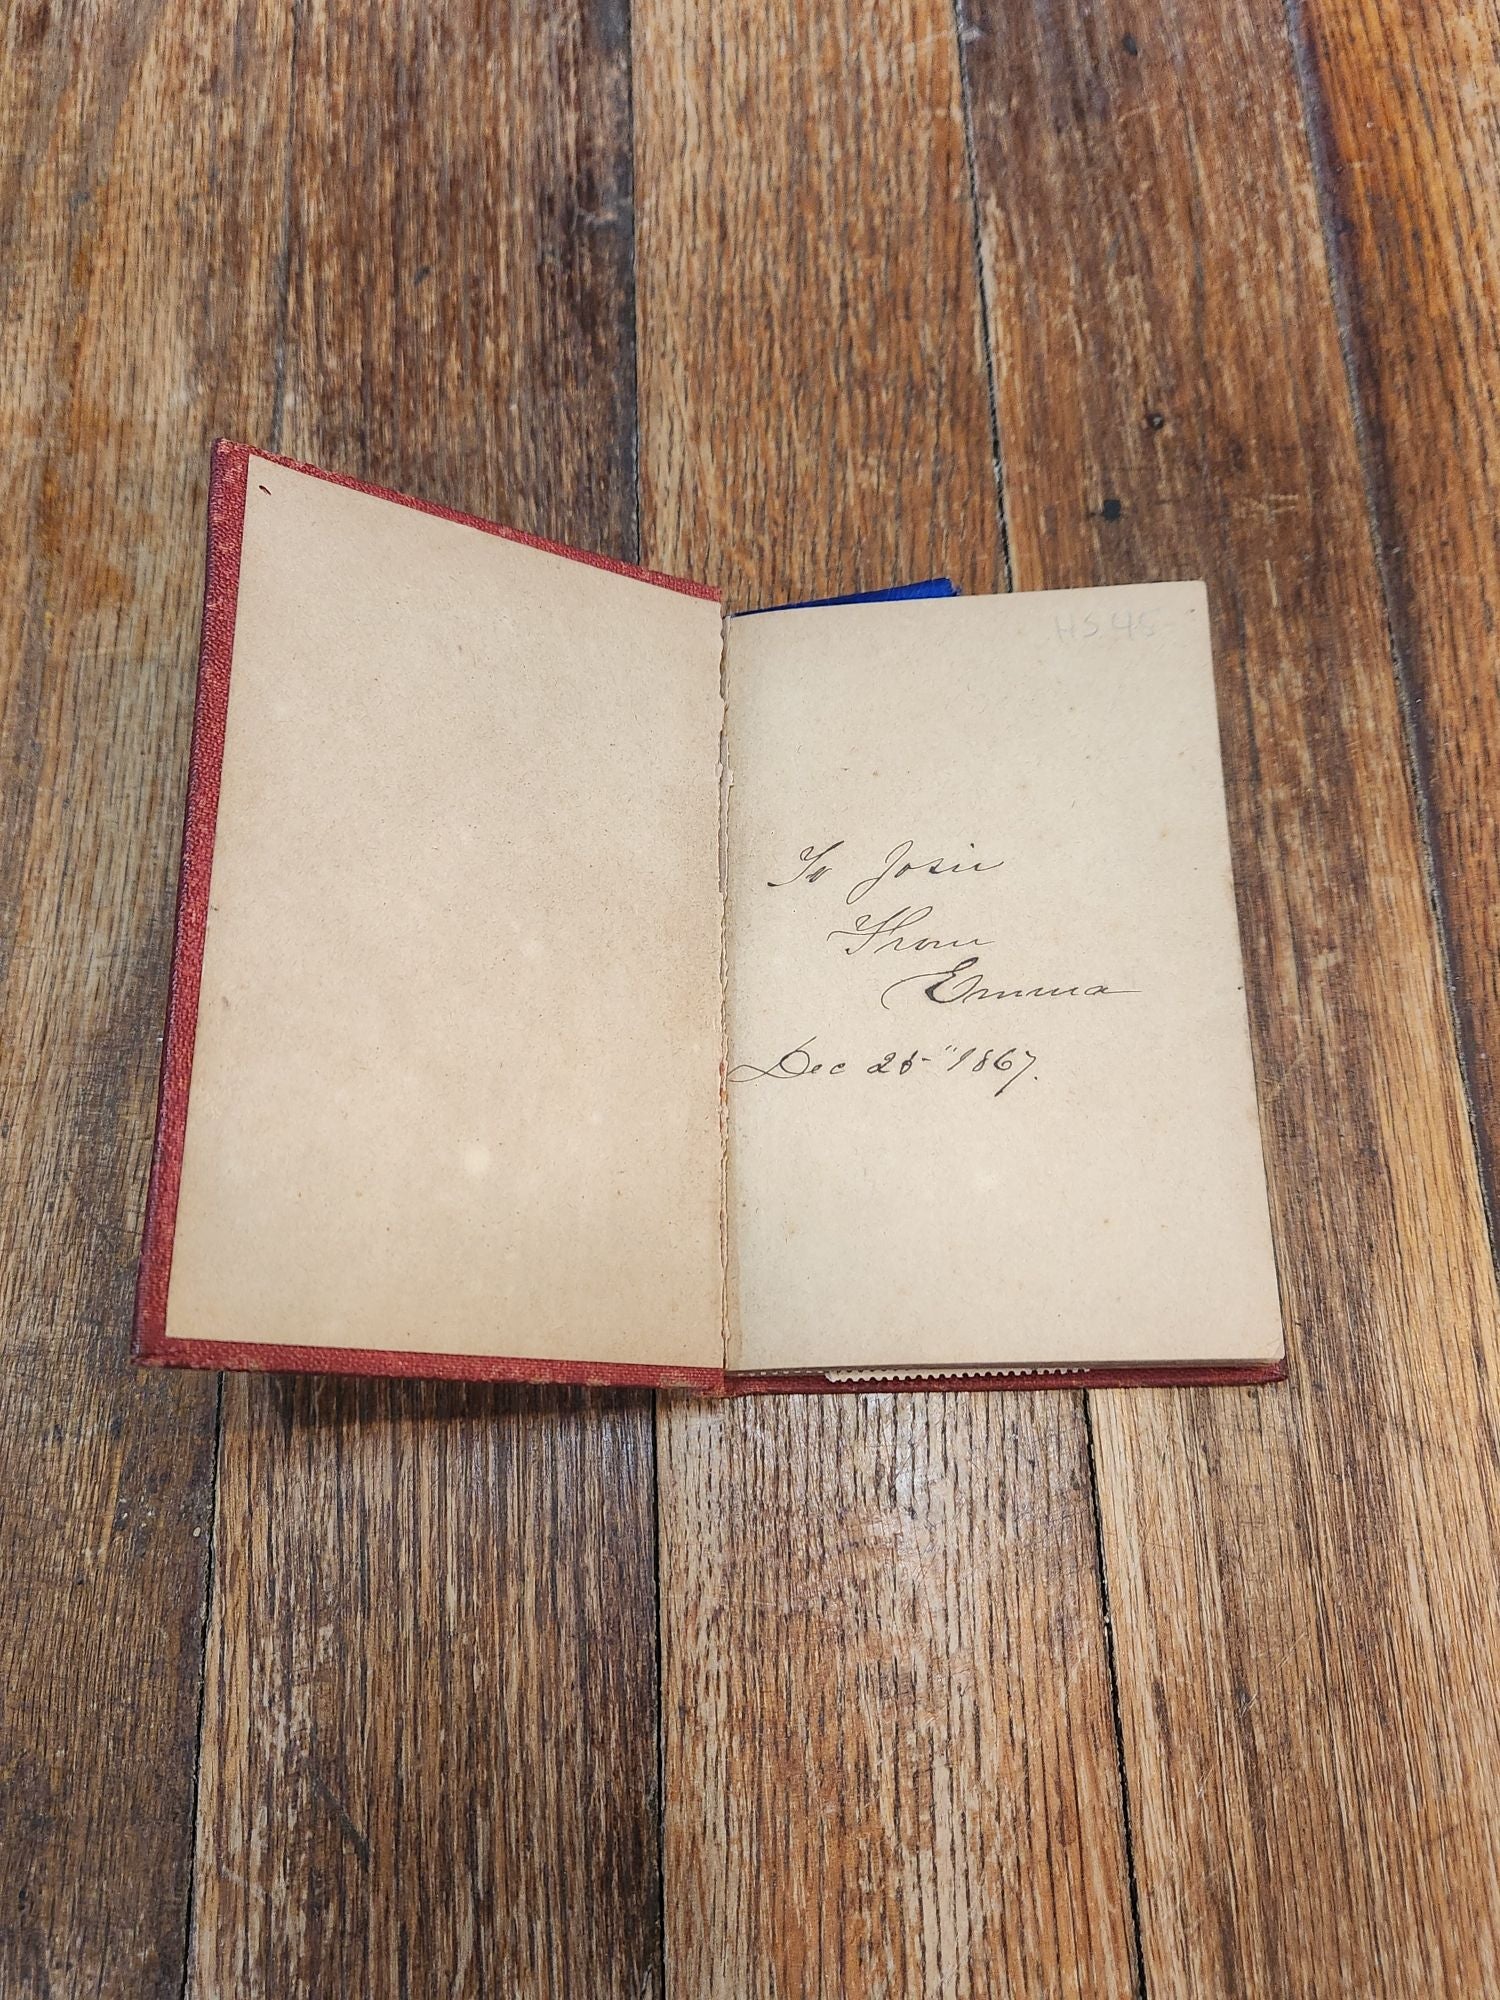 HS45
To Josie
From
Emma
Dec 25" 1867.